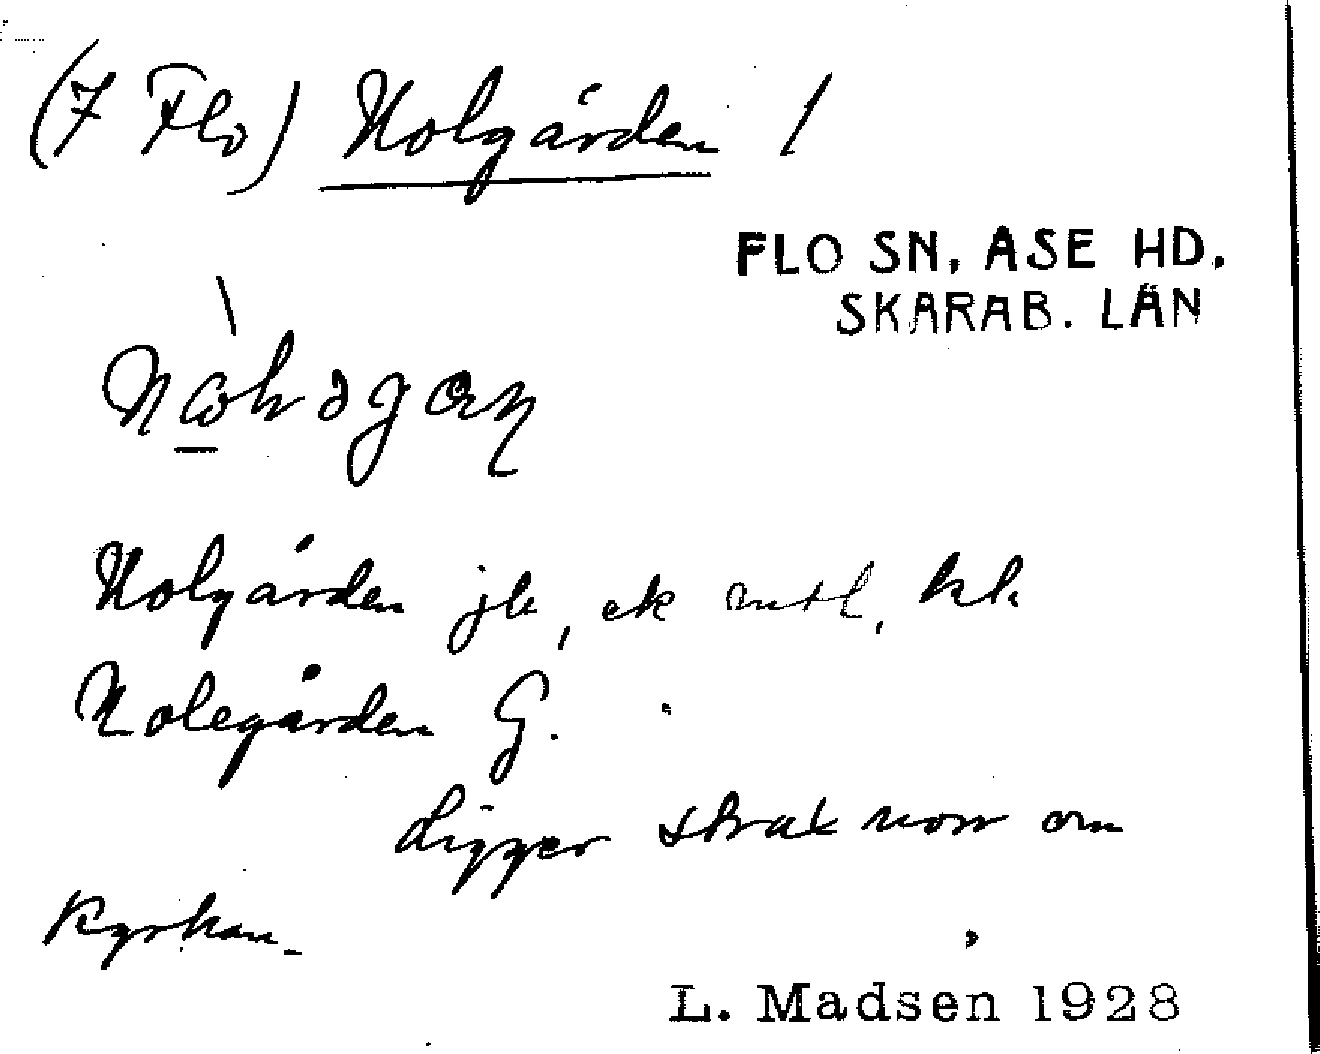 (7 Flo) Nolgården 1
FLO SN, ASE HD.
SKARAB. LÄN
Nolgården jb, ek mtl, kk
Nolegården G.
Ligger strax norr om
kyrkan.
L. Madsen 1928